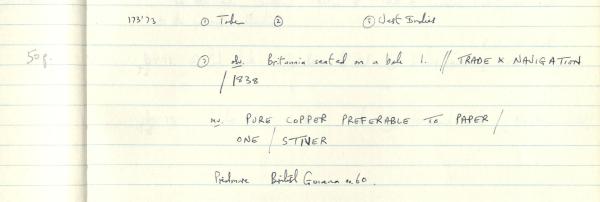 173'73 ① Token ② ⑤ West Indies
50p. ③ obv. Britannia seated on a bale l. // TRADE & NAVIGATION
/ 1838
rev. PURE COPPER PREFERABLE TO PAPER /
ONE / STIVER
Pridmore British Guiana no. 60.